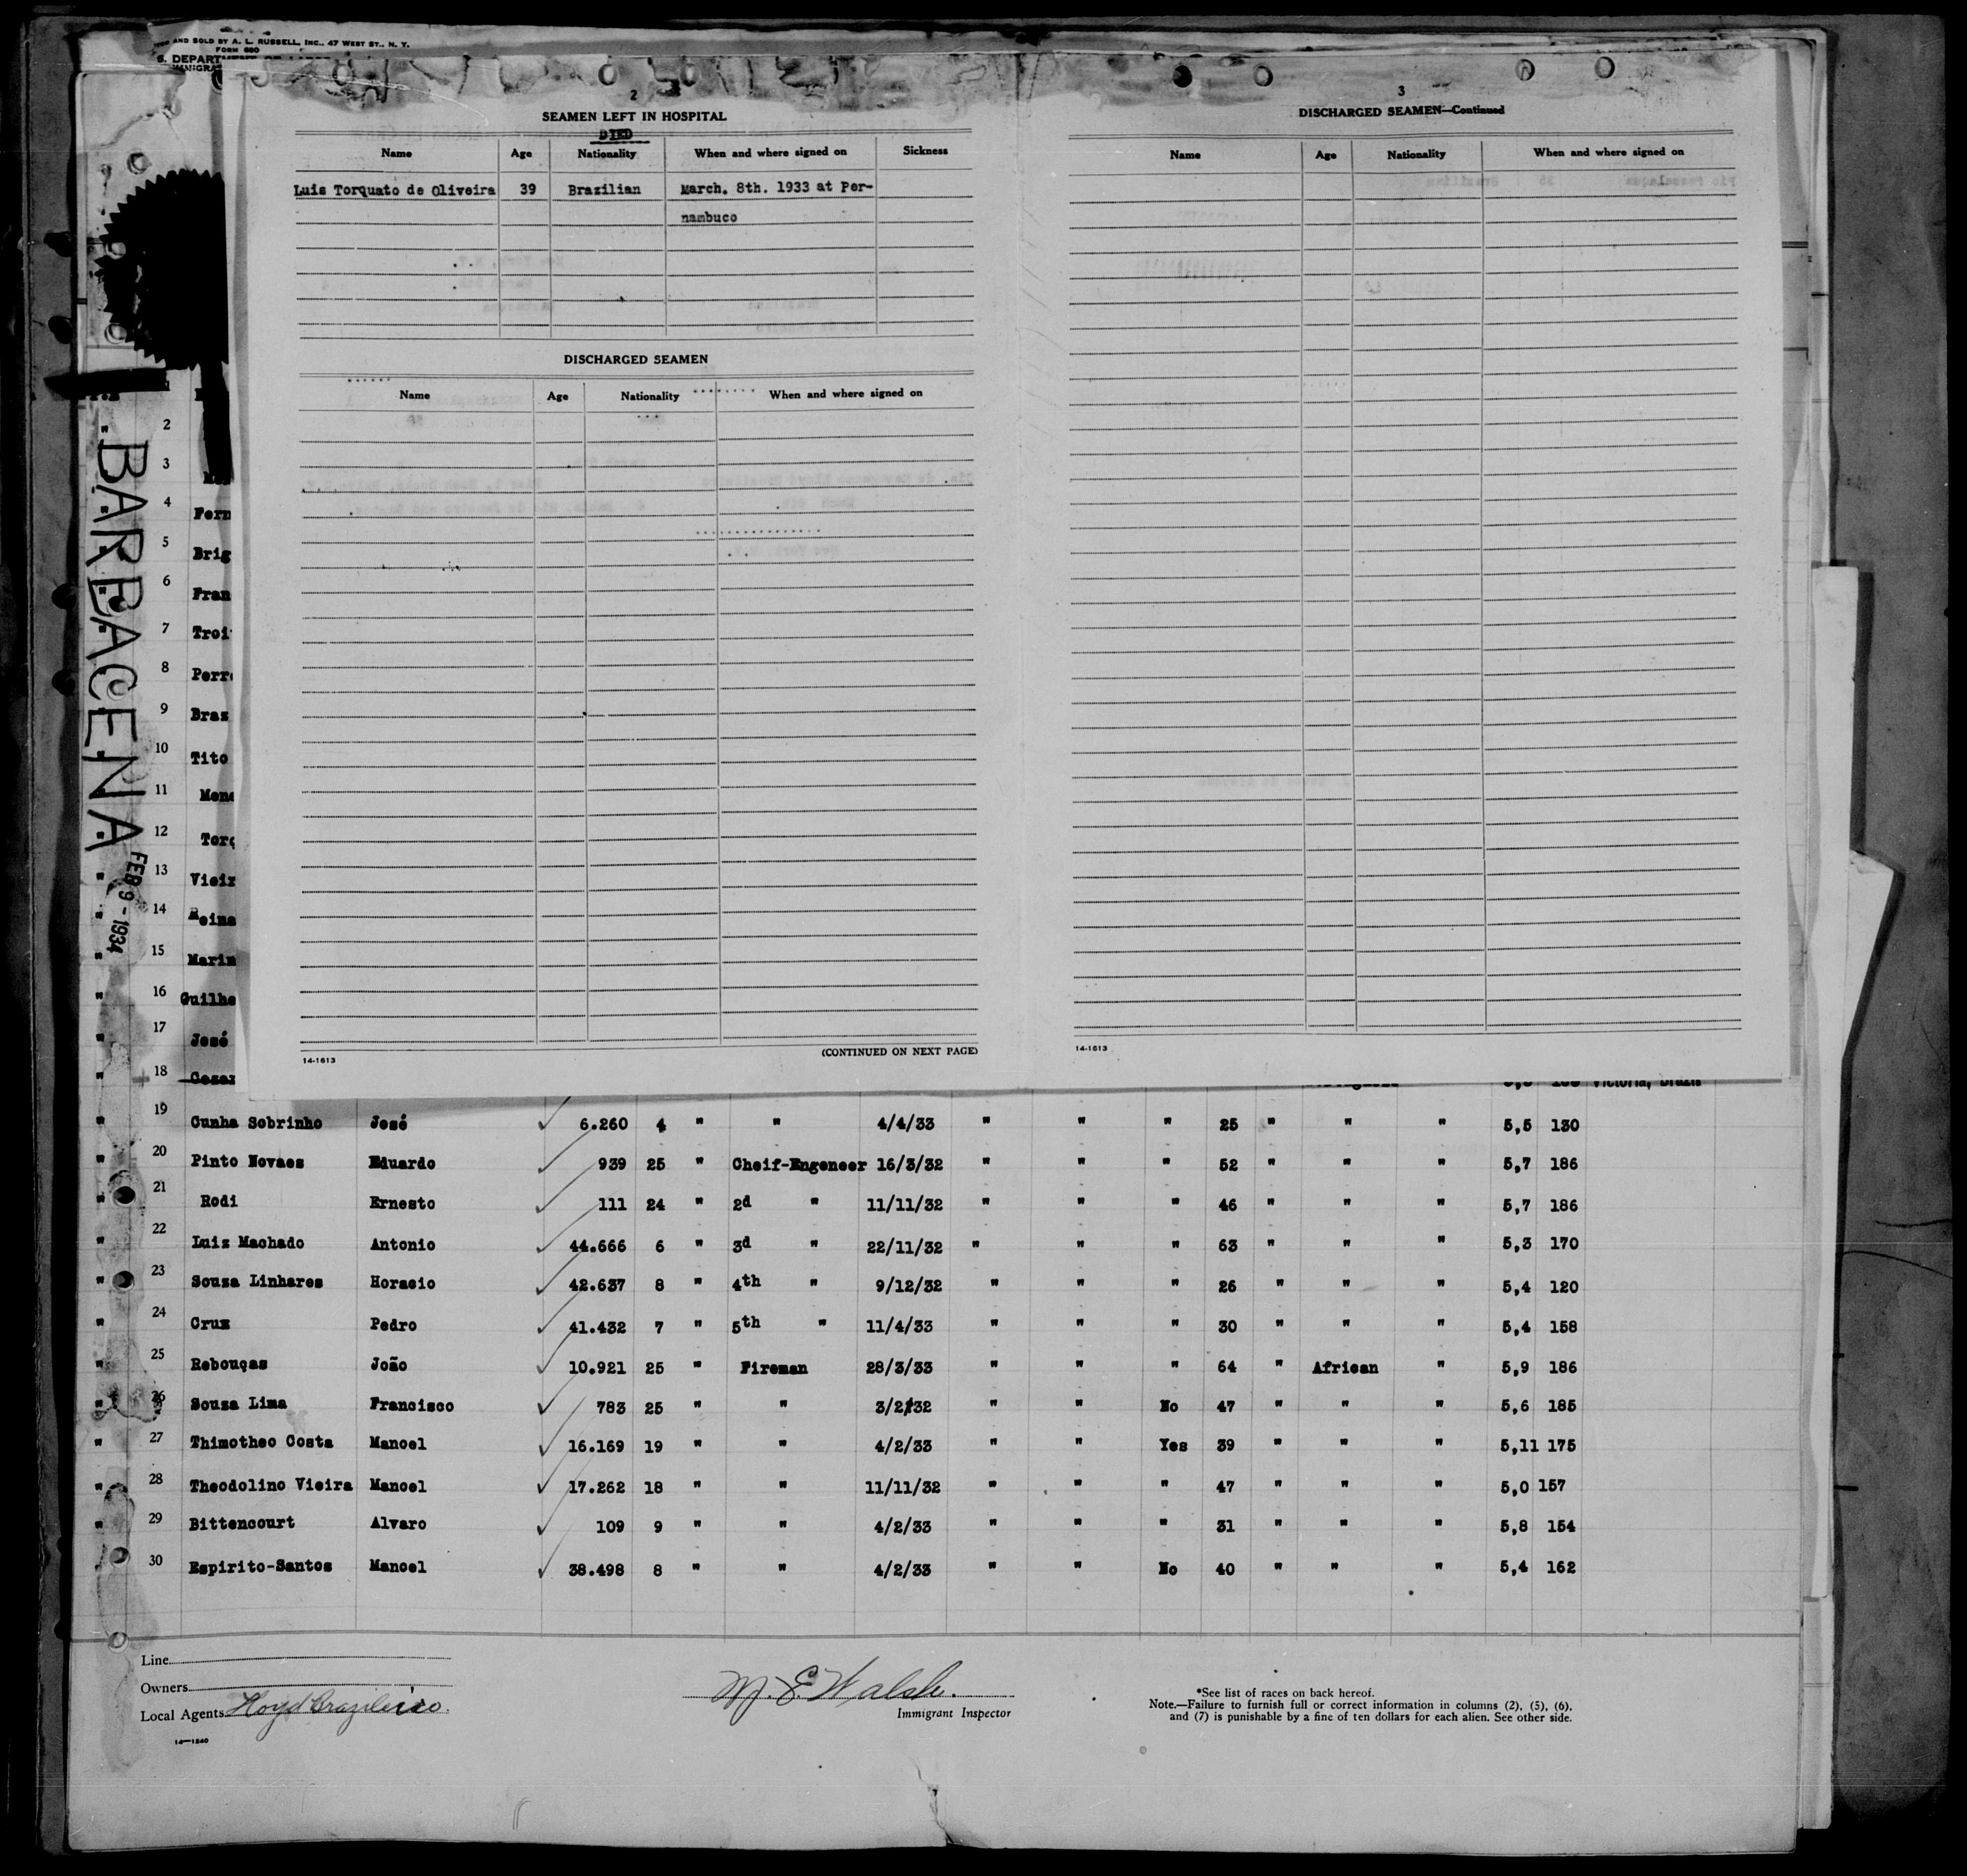 AND SOLD BY A. L. RUSSELL, INC., 47 WEST ST., N. Y.
FORM 680
2
SEAMEN LEFT IN HOSPITAL
DIED
Name Age Nationality When and where signed on Sickness
Luis Torquato de Oliveira 39 Brazilian March. 8th. 1933 at Per-
nambuco
DISCHARGED SEAMEN
Name Age Nationality When and where signed on
(CONTINUED ON NEXT PAGE)
14-1613
3
DISCHARGED SEAMEN—Continued
Name Age Nationality When and where signed on
14-1613
BARBACENA
FEB 9 - 1934
1
" 2
3
4 Fern
5 Brig
6 Fran
7 Troi
8 Perr
9 Bras
10 Tito
11 Mend
12 Torq
" 13 Vieir
" 14 Reina
" 15 Marin
" 16 Guilhe
" 17 José
" 18 Cezar Victoria, Brazil
" 19 Cunha Sobrinho José ✓ 6.260 4 " " 4/4/33 " " " 25 " " " 5,5 130
" 20 Pinto Novaes Eduardo ✓ 939 25 " Cheif-Engeneer 16/3/32 " " " 52 " " " 5,7 186
" 21 Rodi Ernesto ✓ 111 24 " 2d " 11/11/32 " " " 46 " " " 5,7 186
" 22 Luiz Machado Antonio ✓ 44.666 6 " 3d " 22/11/32 " " " 63 " " " 5,3 170
" 23 Souza Linhares Horacio ✓ 42.637 8 " 4th " 9/12/32 " " " 26 " " " 5,4 120
" 24 Cruz Pedro ✓ 41.432 7 " 5th " 11/4/33 " " " 30 " " " 5,4 158
" 25 Rebouças João ✓ 10.921 25 " Fireman 28/3/33 " " " 64 " African " 5,9 186
" 26 Souza Lima Francisco ✓ 783 25 " " 3/2/32 " " No 47 " " " 5,6 185
" 27 Thimotheo Costa Manoel ✓ 16.169 19 " " 4/2/33 " " Yes 39 " " " 5,11 175
" 28 Theodolino Vieira Manoel ✓ 17.262 18 " " 11/11/32 " " " 47 " " " 5,0 157
" 29 Bittencourt Alvaro ✓ 109 9 " " 4/2/33 " " " 31 " " " 5,8 154
" 30 Espirito-Santos Manoel ✓ 38.498 8 " " 4/2/33 " " No 40 " " " 5,4 162
Line
Owners
Local Agents Lloyd Brazileiro.
14-1240
M. E. Walsh.
Immigrant Inspector
*See list of races on back hereof.
Note.—Failure to furnish full or correct information in columns (2), (5), (6),
and (7) is punishable by a fine of ten dollars for each alien. See other side.